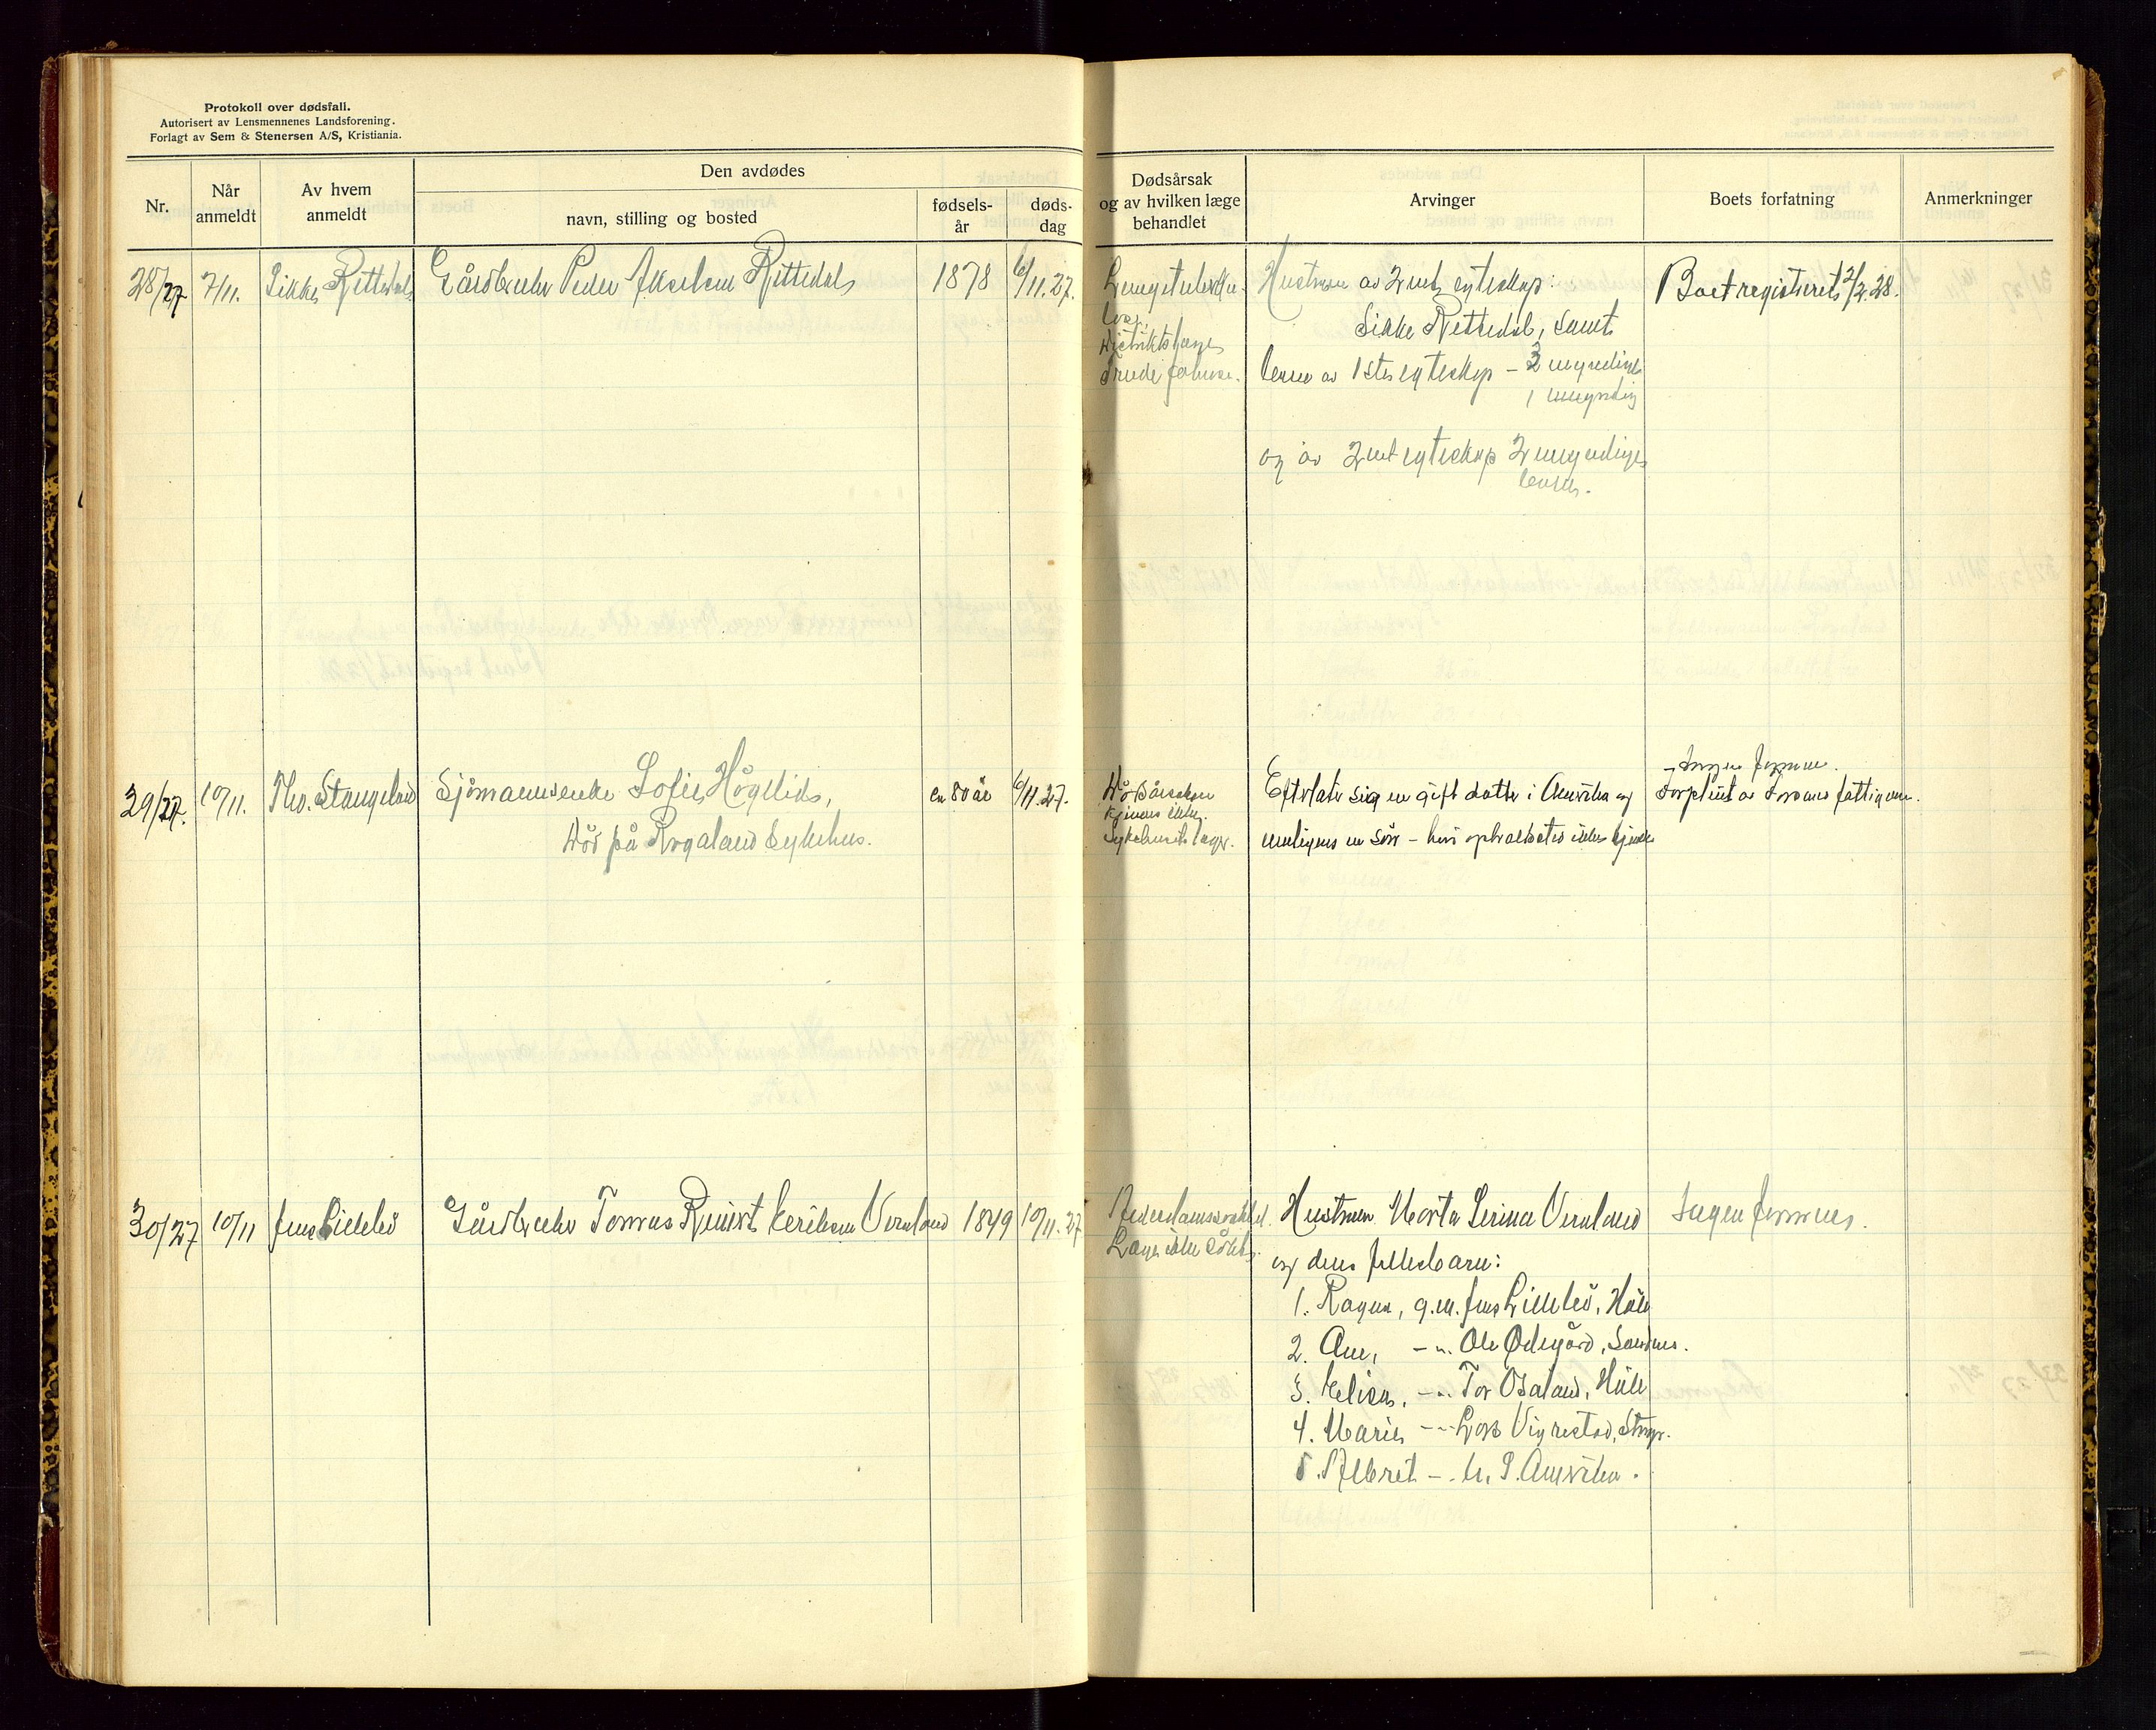 Protokoll over dødsfall.
Autorisert av Lensmennenes Landsforening.
Forlagt av Sem & Stenersen A/S, Kristiania.
Nr.
Når anmeldt
Av hvem anmeldt
Den avdødes
navn, stilling og bosted
fødsels-år
døds-dag
Dødsårsak og av hvilken læge behandlet
Arvinger
Boets forfatning
Anmerkninger
28/27
7/11.
Sikke Rettedal
Gårdbruker Peder Akselsen Rettedal
1878
6/11.27.
Lungetuberku-
lose,
Distriktslæge
Hustruen av 2net egteskap:
Sikke Rettedal, samt
barn av 1ste egteskap – 3 myndige
1 umyndig
og av 2net egteskap 2 umyndige
barn.
Boet registrert 2/2.28.
29/27.
10/11.
Tho. Stangeland
Sjömannsenke Sofie Høglid,
Död på Rogaland Sykehus.
ca 80 år
6/11.27.
Dödsårsaken
kjennes ikke.
Sykehusets læge.
Efterlater sig en gift datter i Amerika og
muligens en sön – hvis opholdssted ikke kjendes
– Ingen formue.
Forpleiet av Forsand fattigvesen.
30/27
10/11
Jens Lillebö
Gårdbruker Tomas Reinert Eriksen Verland
1849
10/11.27
Alderdomssvakhed.
Læge ikke sökt.
Hustruen Marta Serina Verland
og deres fellesbarn:
1. Ragna, g.m. Jens Lillebö, Höle
2. Ane, –"– Ole Ødegård, Sandnes.
3. Elisa, –"– Tor Osaland, Höle
4. Marie –"– Lars Vigrestad, Stvgr.
5. Albret – N. P. Amerika.
Ingen formue.